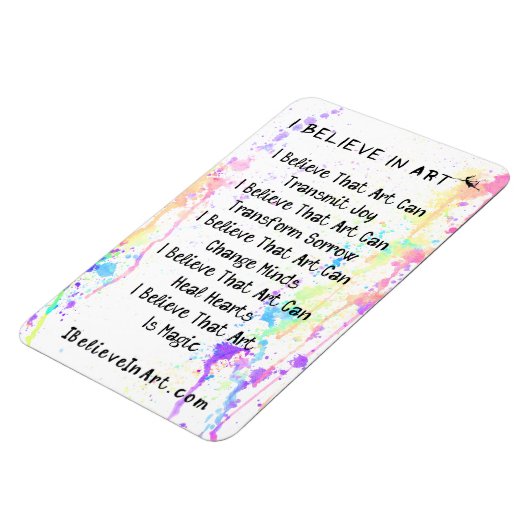 I BELIEVE IN ART
I Believe That Art Can
Transmit Joy
I Believe That Art Can
Transform Sorrow
I Believe That Art Can
Change Minds
I Believe That Art Can
Heal Hearts
I Believe That Art
Is Magic
IBelieveInArt.com